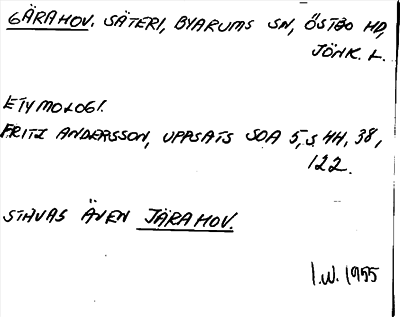 GÄRAHOV. SÄTERI, BYARUMS SN, ÖSTBO HD,
JÖNK. L.
ETYMOLOGI.
FRITZ ANDERSSON, UPPSATS SOA 5, S 44, 38,
122.
STAVAS ÄVEN JÄRAHOV.
I.W. 1955